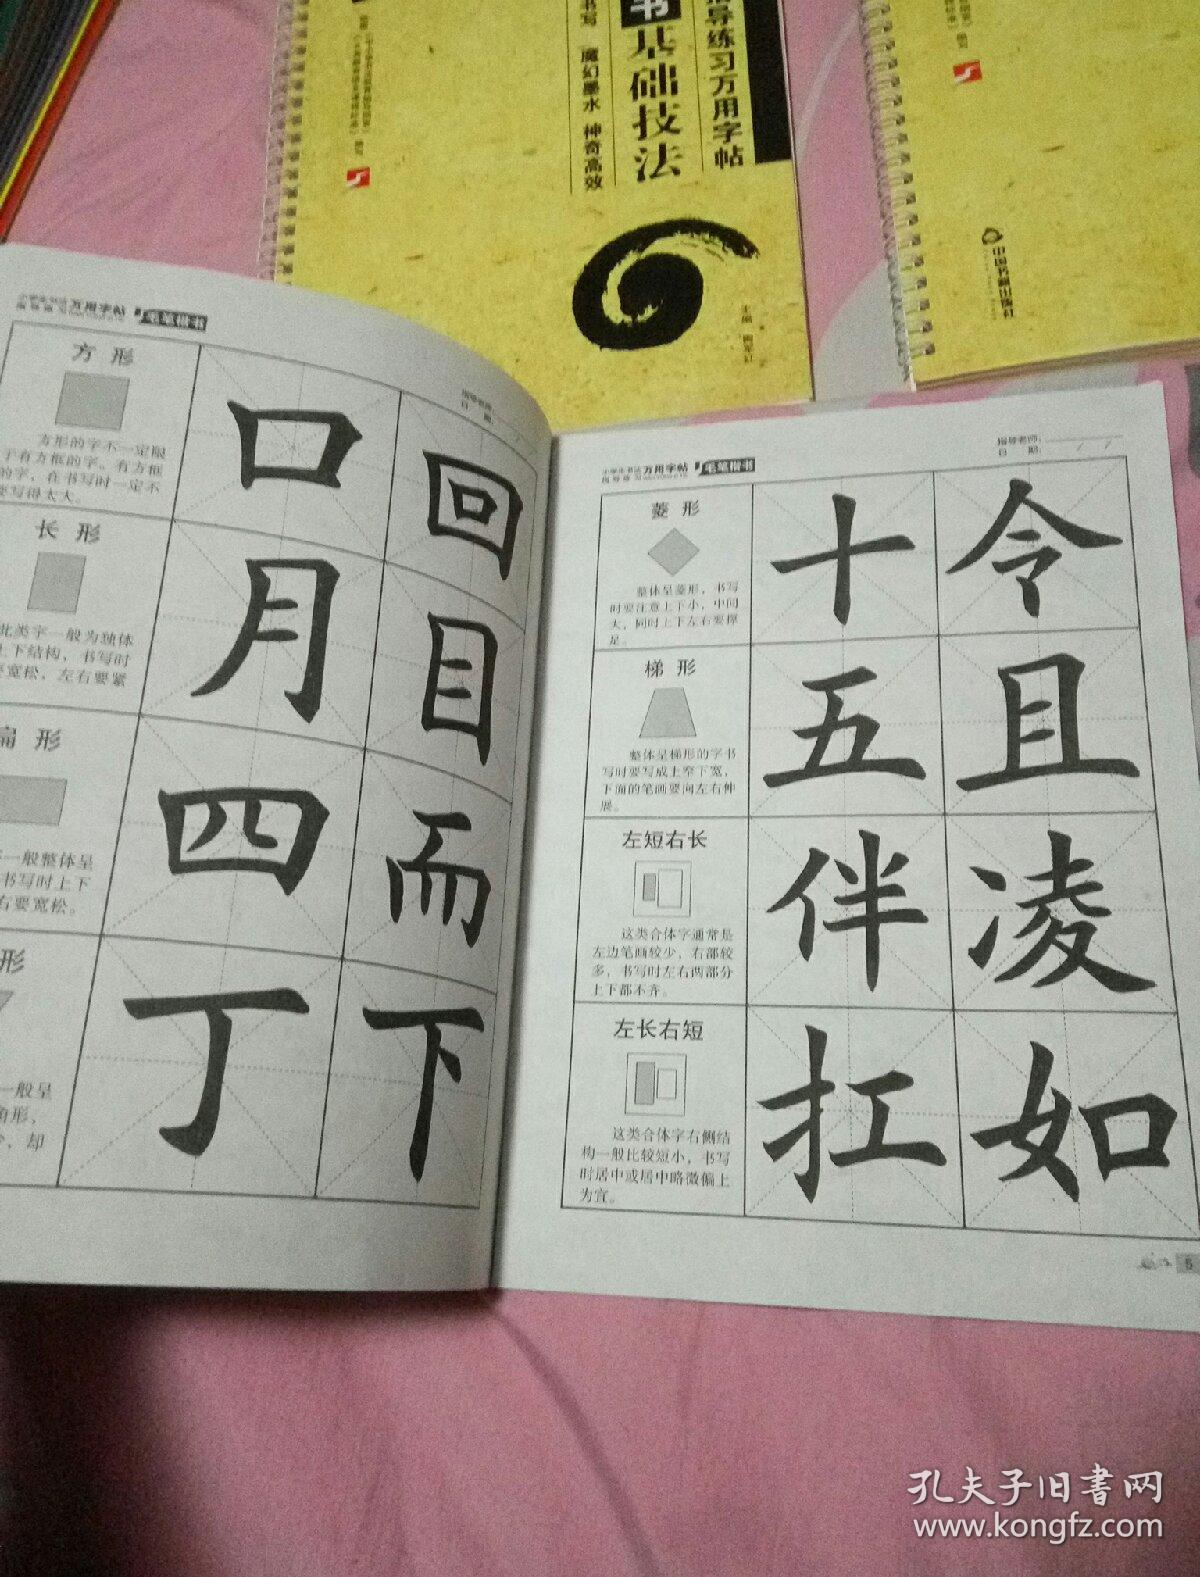 指导练习万用字帖
书基础技法
书写 魔幻墨水 神奇高效
主编
中国书籍出版社
万用字帖
毛笔楷书
方形
方形的字不一定限
于有方框的字。有方框
的字，在书写时一定不
要写得太大。
口
回
长形
此类字一般为独体
上下结构，书写时
要宽松，左右要紧
月
目
扁形
一般整体呈
书写时上下
右要宽松。
四
而
形
一般呈
角形，
却
丁
下
指导老师：
日 期：
小学生书法
指导练习
万用字帖
毛笔楷书
指导老师：
日 期：
菱形
整体呈菱形，书写
时要注意上下小，中间
大，同时上下左右要撑
足。
十
令
梯形
整体呈梯形的字书
写时要写成上窄下宽，
下面的笔画要向左右伸
展。
五
且
左短右长
这类合体字通常是
左边笔画较少，右部较
多，书写时左右两部分
上下都不齐。
伴
凌
左长右短
这类合体字右侧结
构一般比较短小，书写
时居中或居中略微偏上
为宜。
扛
如
5
孔夫子旧书网
www.kongfz.com